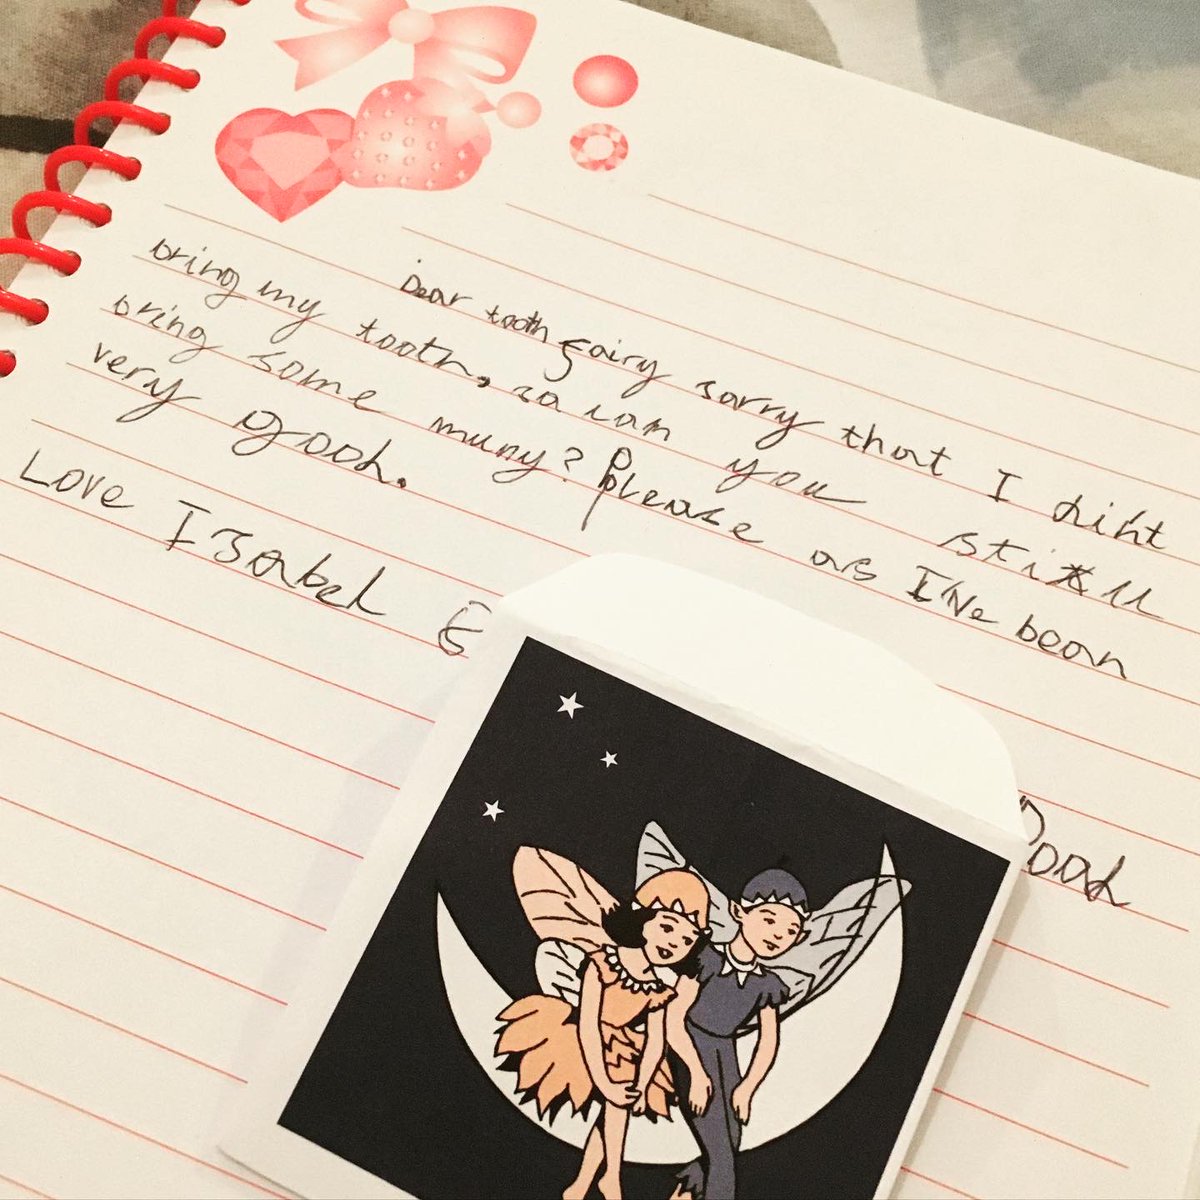 Dear tooth fairy sorry that I didt
bring my tooth, so can you still
bring some muny? Please as I've bean
very good.
Love Isabel